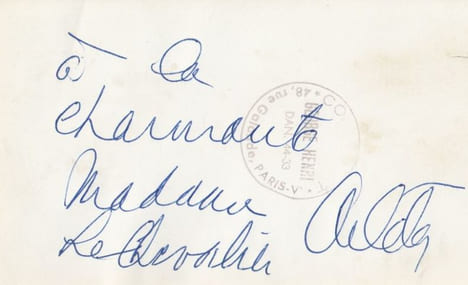 à la
charmante
Madame
Le Chevalier
* CO
GEORGE HENRI
DAN 94-33
48, rue Galande, PARIS-V